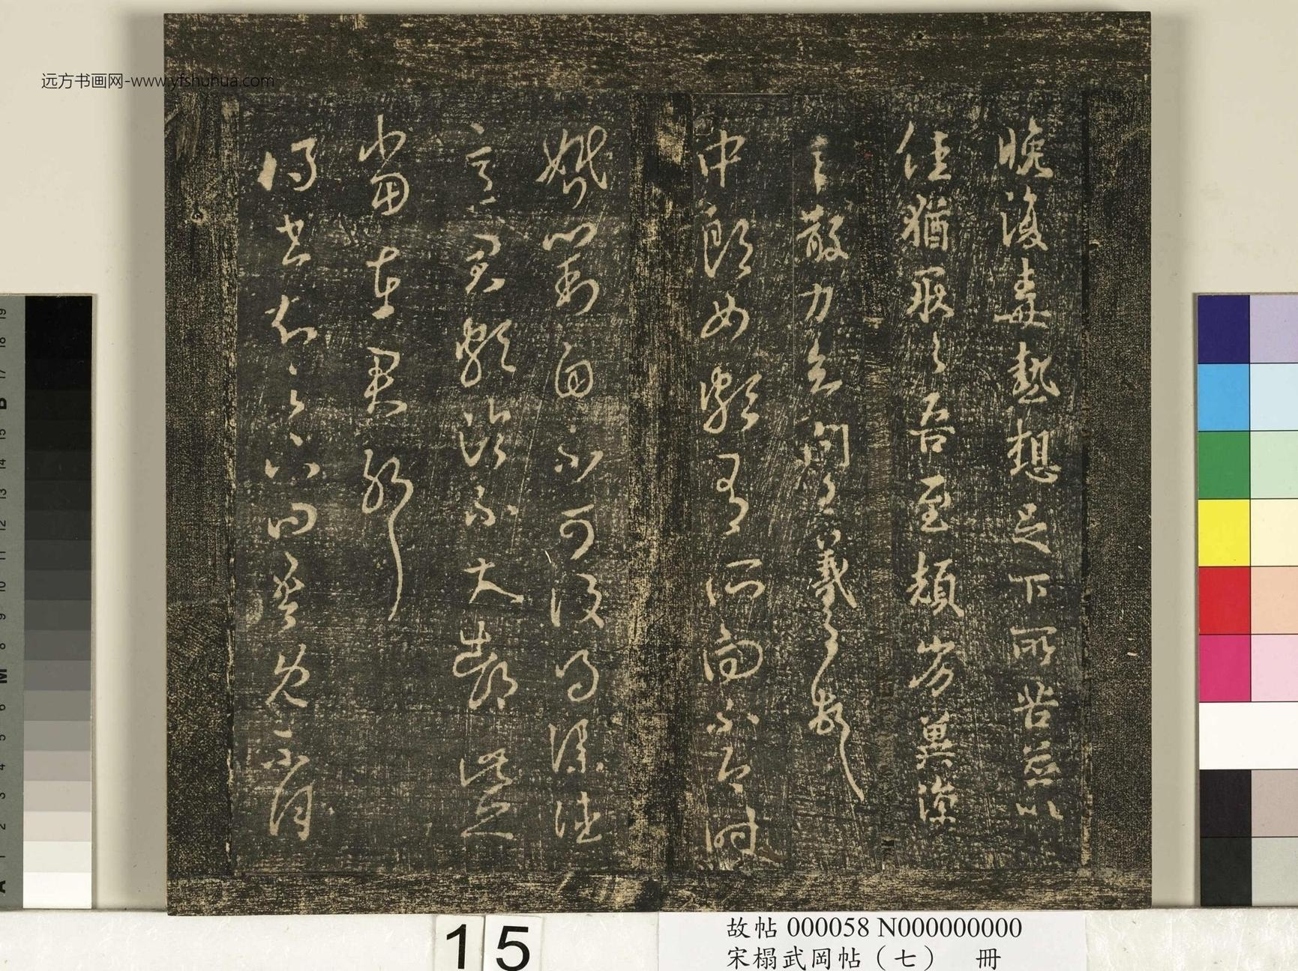 远方书画网-www.yfshuhua.com
晚復毒熱想足下所苦並以
佳猶耿耿吾至頓劣冀涼
言散力知問王羲之報
中郎女頗有所向不今時
婚對自不可復得僕往
意君頗論不大都此
亦當在君耶
得書知
15
故帖 000058 N000000000
宋榻武岡帖（七） 冊